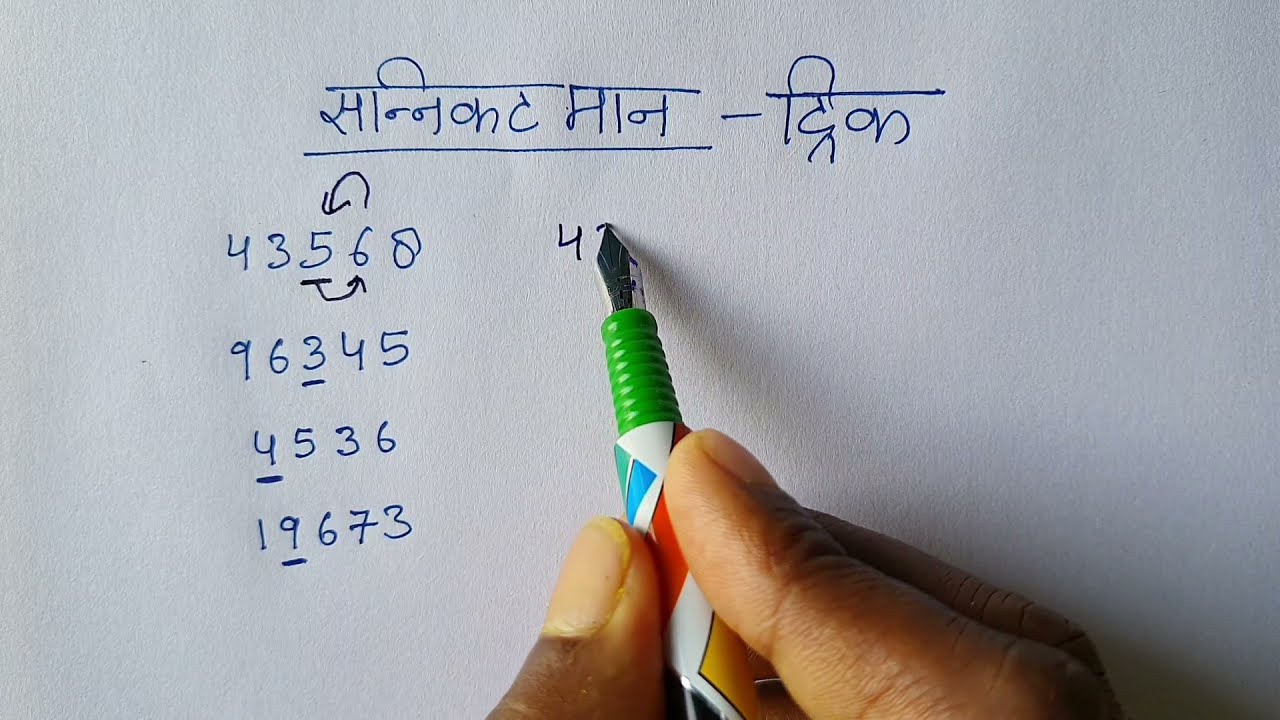 सन्निकट मान - ट्रिक
43560 4
96345
4536
19673